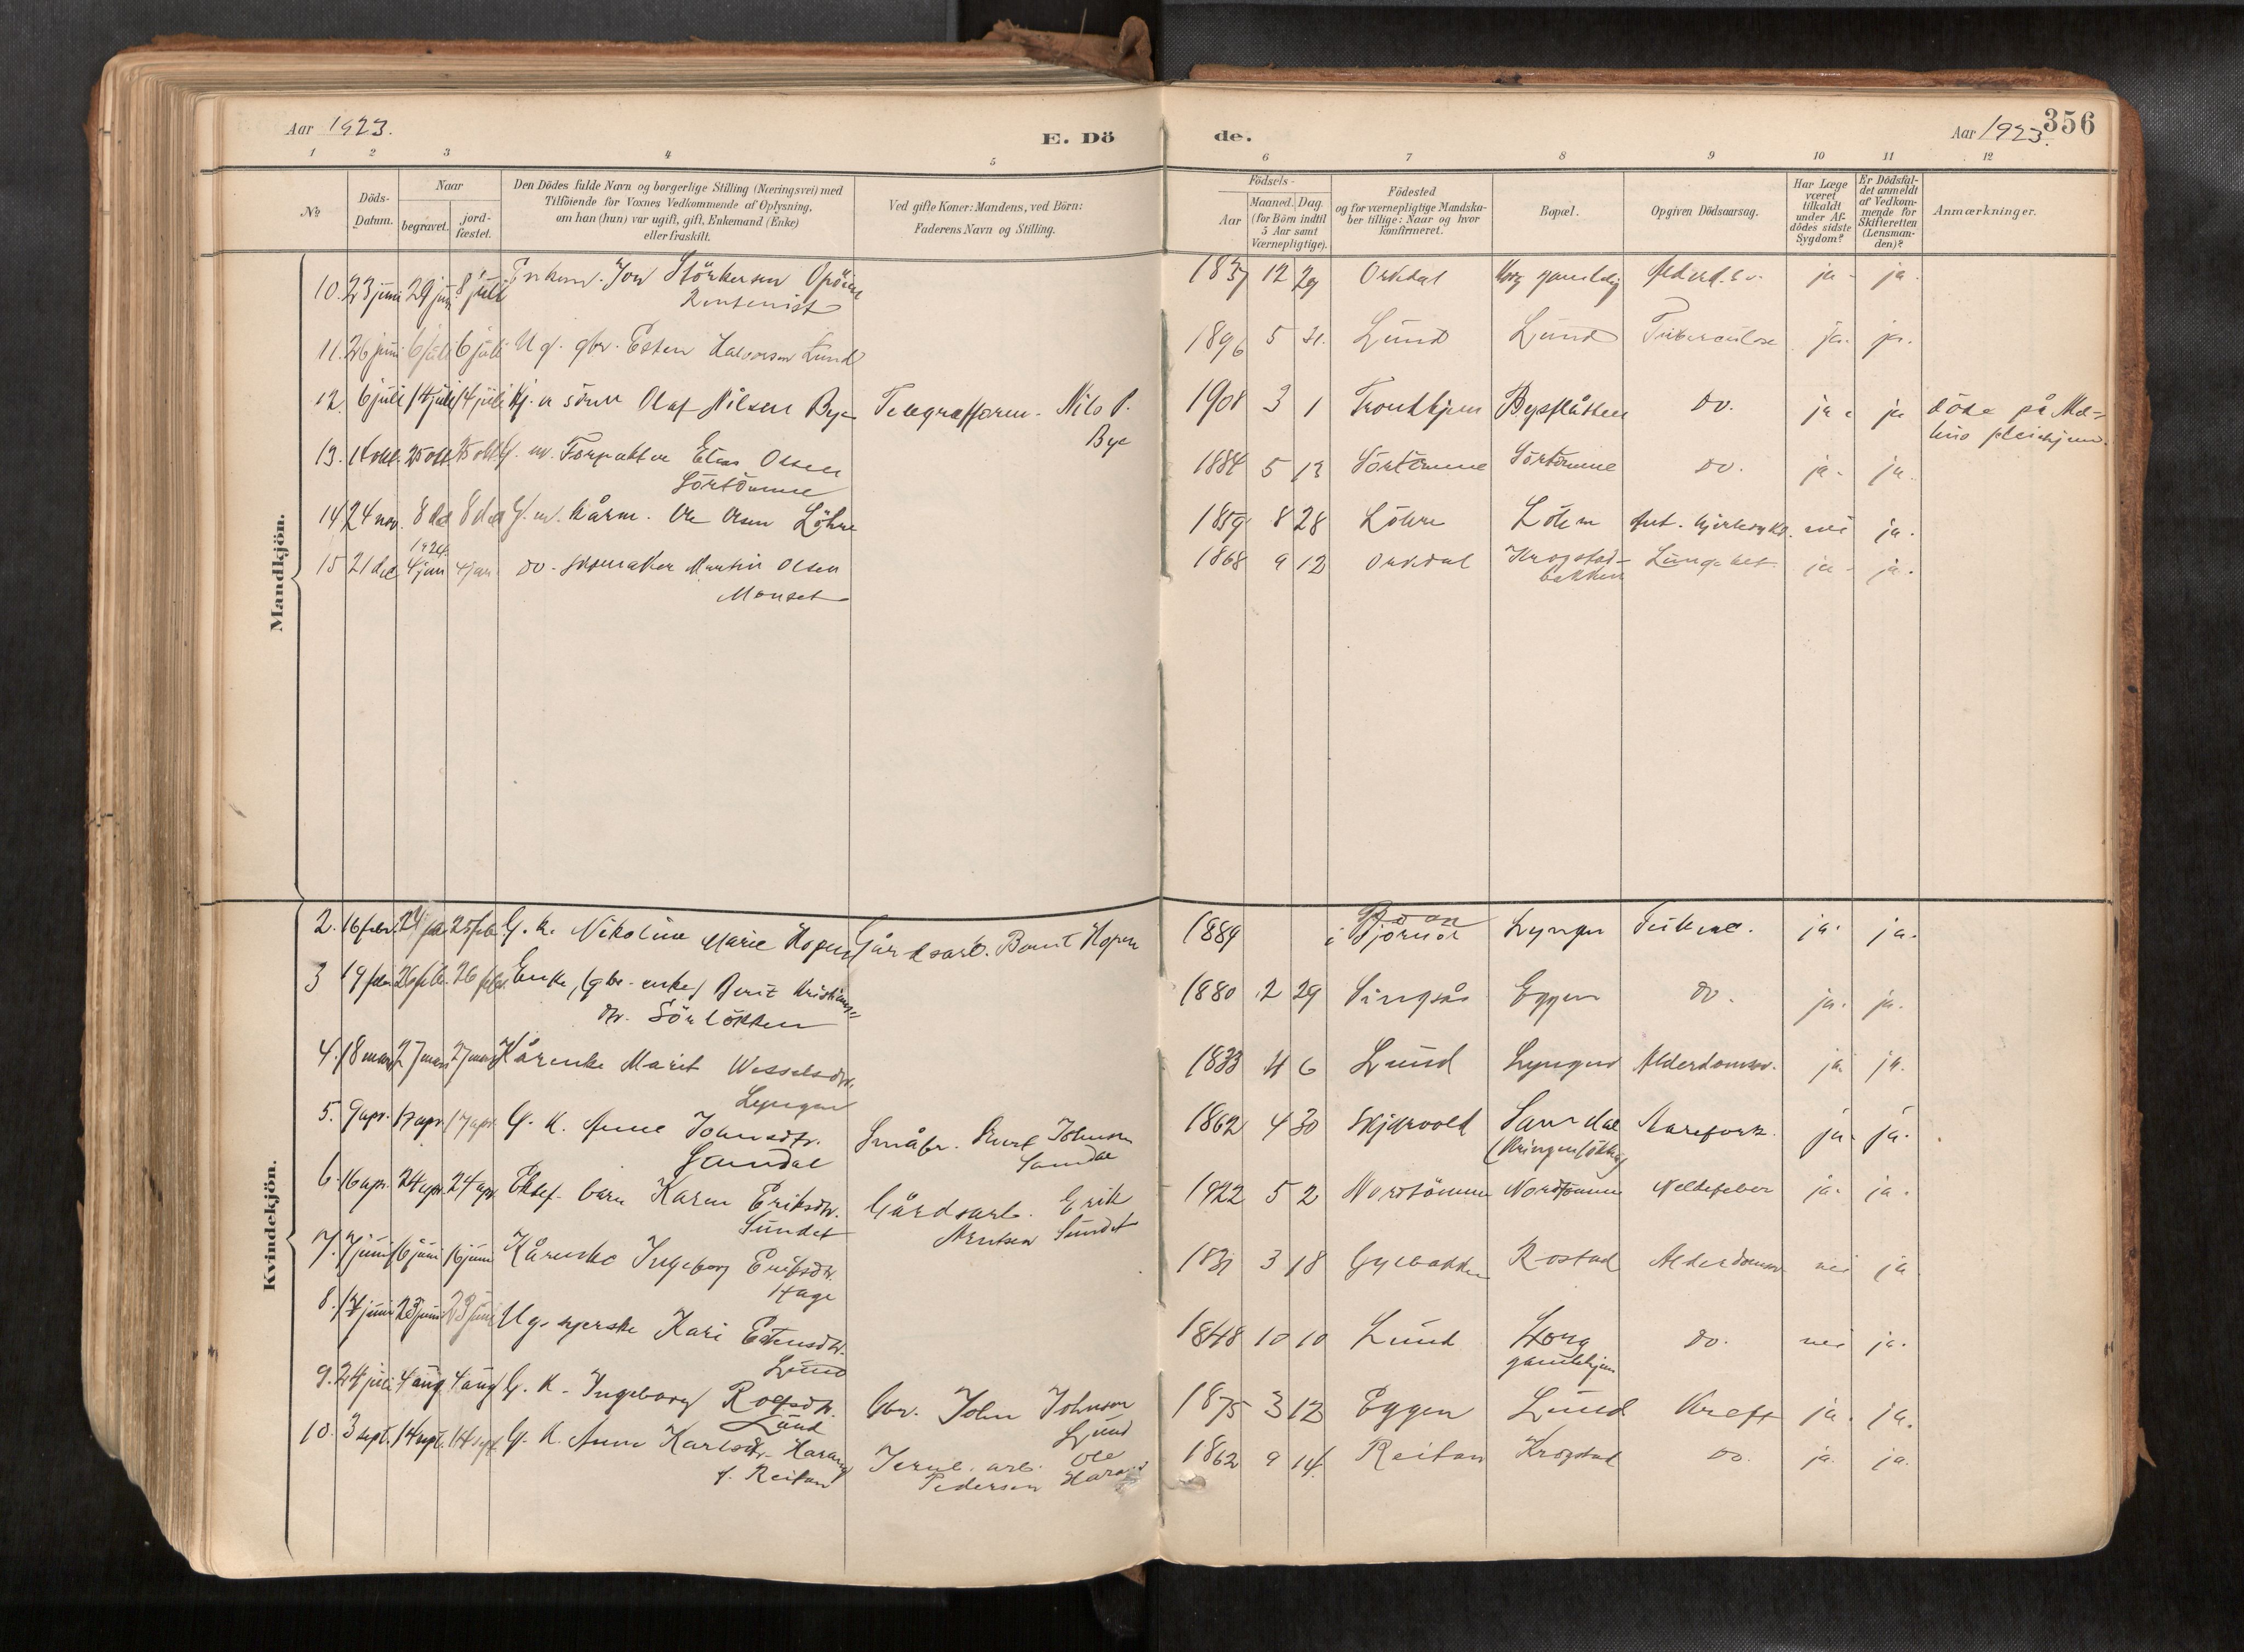 Aar 1923.
E. Dö
de.
Aar 1923.
356
1 2 3 4 5 6 7 8 9 10 11 12
No
Döds-
Datum.
Naar
begravet.
jord-
fæstet.
Den Dödes fulde Navn og borgerlige Stilling (Næringsvei) med
Tilföiende for Voxnes Vedkommende af Oplysning,
om han (hun) var ugift, gift, Enkemand (Enke)
eller fraskilt.
Ved gifte Koner: Mandens, ved Börn:
Faderens Navn og Stilling.
Födsels-
Aar
Maaned. Dag.
(for Börn indtil
5 Aar samt
Værnepligtige).
Födested
og for værnepligtige Mandska-
ber tillige: Naar og hvor
konfirmeret.
Bopæl.
Opgiven Dödsaarsag.
Har Læge
været
tilkaldt
under Af-
dödes sidste
Sygdom?
Er Dödsfal-
det anmeldt
af Vedkom-
mende for
Skifteretten
(Lensman-
den)?
Anmærkninger.
Mandkjön.
10. 23 juni 29 juni 8 juli Enkem. Jon Störkersen 1837 12 29 Orkdal ja - ja.
Rentenist
11. 26 juni 6 juli 6 juli Ug. gbr. Esten Halvorsen Lund 1896 5 21. Lund Lund Tuberculose ja. ja.
12. 6 juli 14 juli 14 juli Olaf Nilsen Bye Nils P. 1908 3 1 Trondhjem Byeflåtten Do. ja ja döde på
Bye
13. 16 okt. 25 okt. 25 okt. G. m. Forpakter Olsen 1884 5 13 Sörtömme Sörtömme Do. ja - ja.
Sörtömme
14 24 nov. 8 dec 8 dec G. m. Kårm. Ole Olsen Löhre 1859 8 28 Löhre nei ja.
1924.
15 21 dec 4 jan 4 jan Do - skomaker Martin Olsen 1868 9 12 Orkdal Krogstad- ja - ja.
bakken
Monset
Kvindekjön.
2. 16 febr. 25 feb. G. k. Nikoline Marie Hopen Gårdsarb. Bernt Hopen 1889 i Bjørnör Lyngen ja. ja.
3 19 febr 26 febr. 26 febr. Enke, (gbr. enke) Berit Kristians= 1880 2 29 Singsås Eggen Do. ja. ja.
dtr. Sörlökken
4. 18 mars 27 mars 27 mars Kårenke Marit Wesselsdtr. 1833 4 6 Lund Lyngen Alderdomsv. ja ja.
Lyngen
5. 9 apr. 17 apr 17 apr. G. K. Anne Johnsdtr. Småbr. Johnsen 1862 4 30 Skjærvold Samdal Aarefork. ja. ja.
Samdal
Samdal
6. 16 apr. 24 apr. 24 apr. Ektef. barn Karen Eriksdtr. Gårdsarb. Erik 1922 5 2 Nordtömme Nordtömme Neldefeber ja. ja.
Sundet
Arntsen Sundet
7. 7 juni 16 juni 16 juni Kårenke Ingeborg Eriksdtr. 1831 3 18 Gylbakken Rostad Alderdomsv. nei ja
Hage
8. 17 juni 23 juni 23 juni Ug. syerske Kari Estensdtr. 1848 10 10 Lund Horg Do. nei ja.
gamlehjem
Lund
9. 24 juli 4 aug 4 aug G. K. Ingeborg Rolfsdtr. Gbr. John Johnsen 1875 3 12 Eggen Lund Kreft ja. ja.
Lund
Lund
10. 3 sept. 14 sept. 14 sept. G. K. Anne Karlsdtr. Harang Jernb. arb. Ole 1862 9 14. Reitan Krogstad Do. ja. ja.
f. Reitan
Pedersen Harang